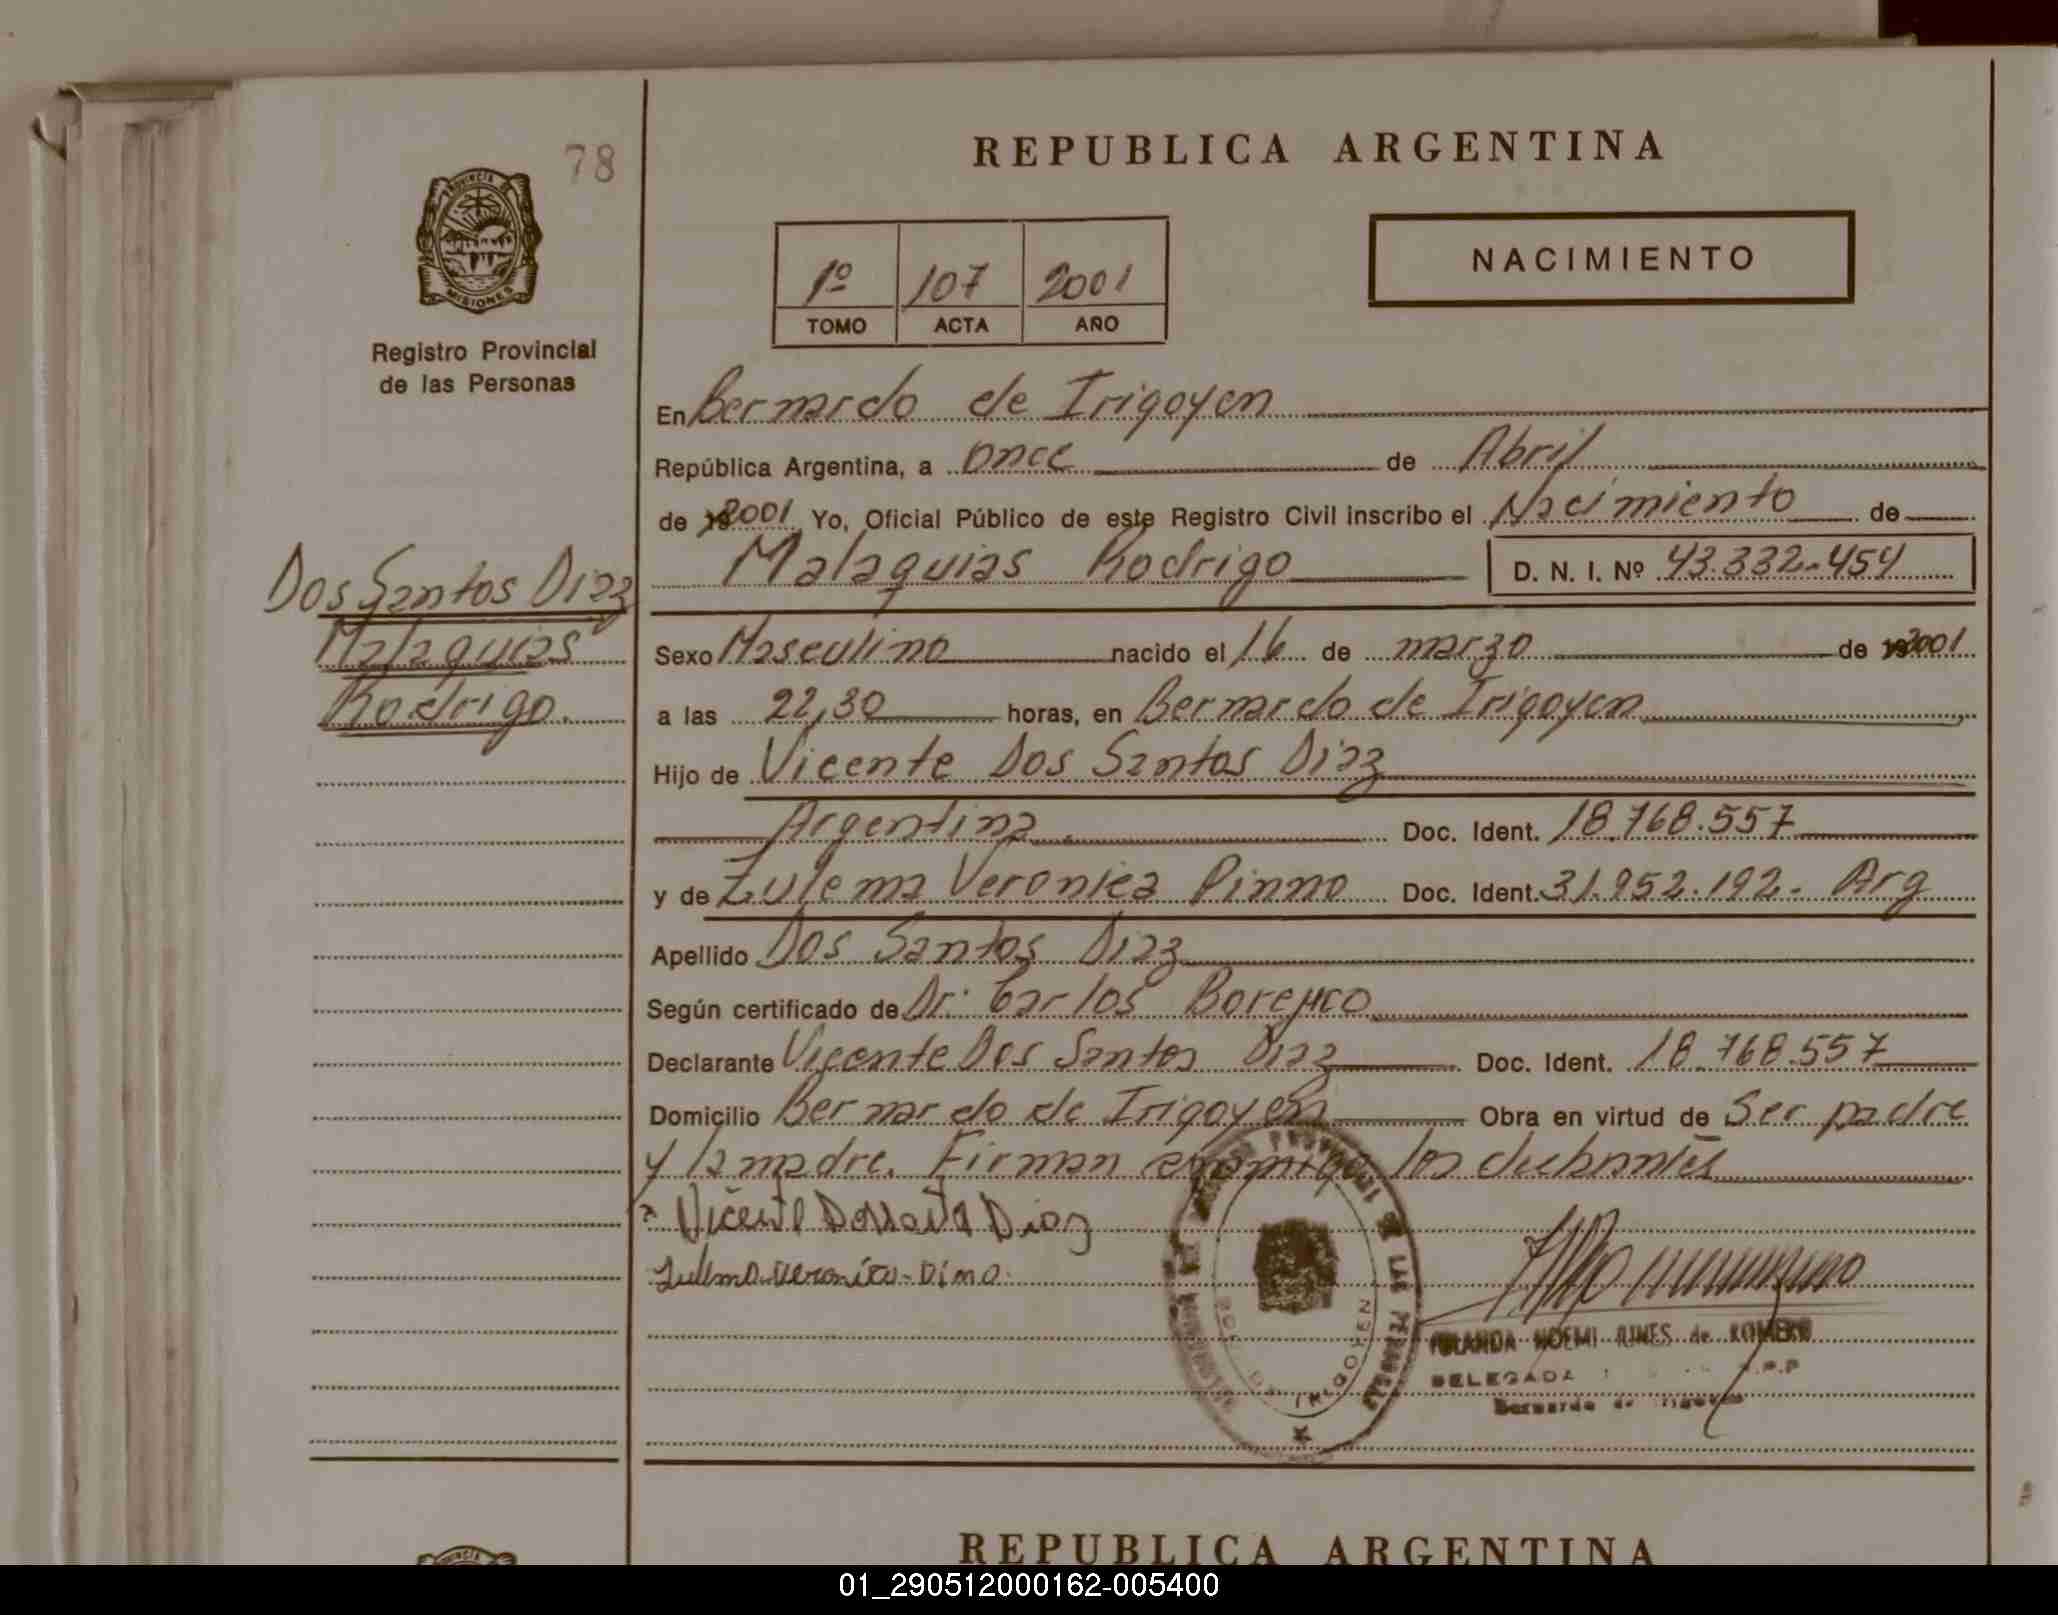 78
REPUBLICA ARGENTINA
PROVINCIA DE
MISIONES
Registro Provincial
de las Personas
NACIMIENTO
1º 107 2001
TOMO ACTA AÑO
En Bernardo de Irigoyen
República Argentina, a once de Abril
de 2001 Yo, Oficial Público de este Registro Civil inscribo el Nacimiento de
Malaquias Rodrigo D. N. I. Nº 43.332.454
Dos Santos Diaz
Malaquias
Rodrigo.
Sexo Masculino nacido el 16 de marzo de 2001
a las 22,30 horas, en Bernardo de Irigoyen
Hijo de Vicente Dos Santos Diaz
Argentina. Doc. Ident. 18.768.557
y de Zulema Veronica Pinno Doc. Ident. 31.952.192- Arg
Apellido Dos Santos Diaz
Según certificado de Dr. Carlos
Declarante Vicente Dos Santos Diaz Doc. Ident. 18.768.557
Domicilio Bernardo de Irigoyen Obra en virtud de Ser padre
y la madre. Firman conmigo los
Vicente Diaz
Zulema Veronica
NOEMI de ROMERO
DELEGADA
Bernardo de Irigoyen
REPUBLICA ARGENTINA
01_290512000162-005400